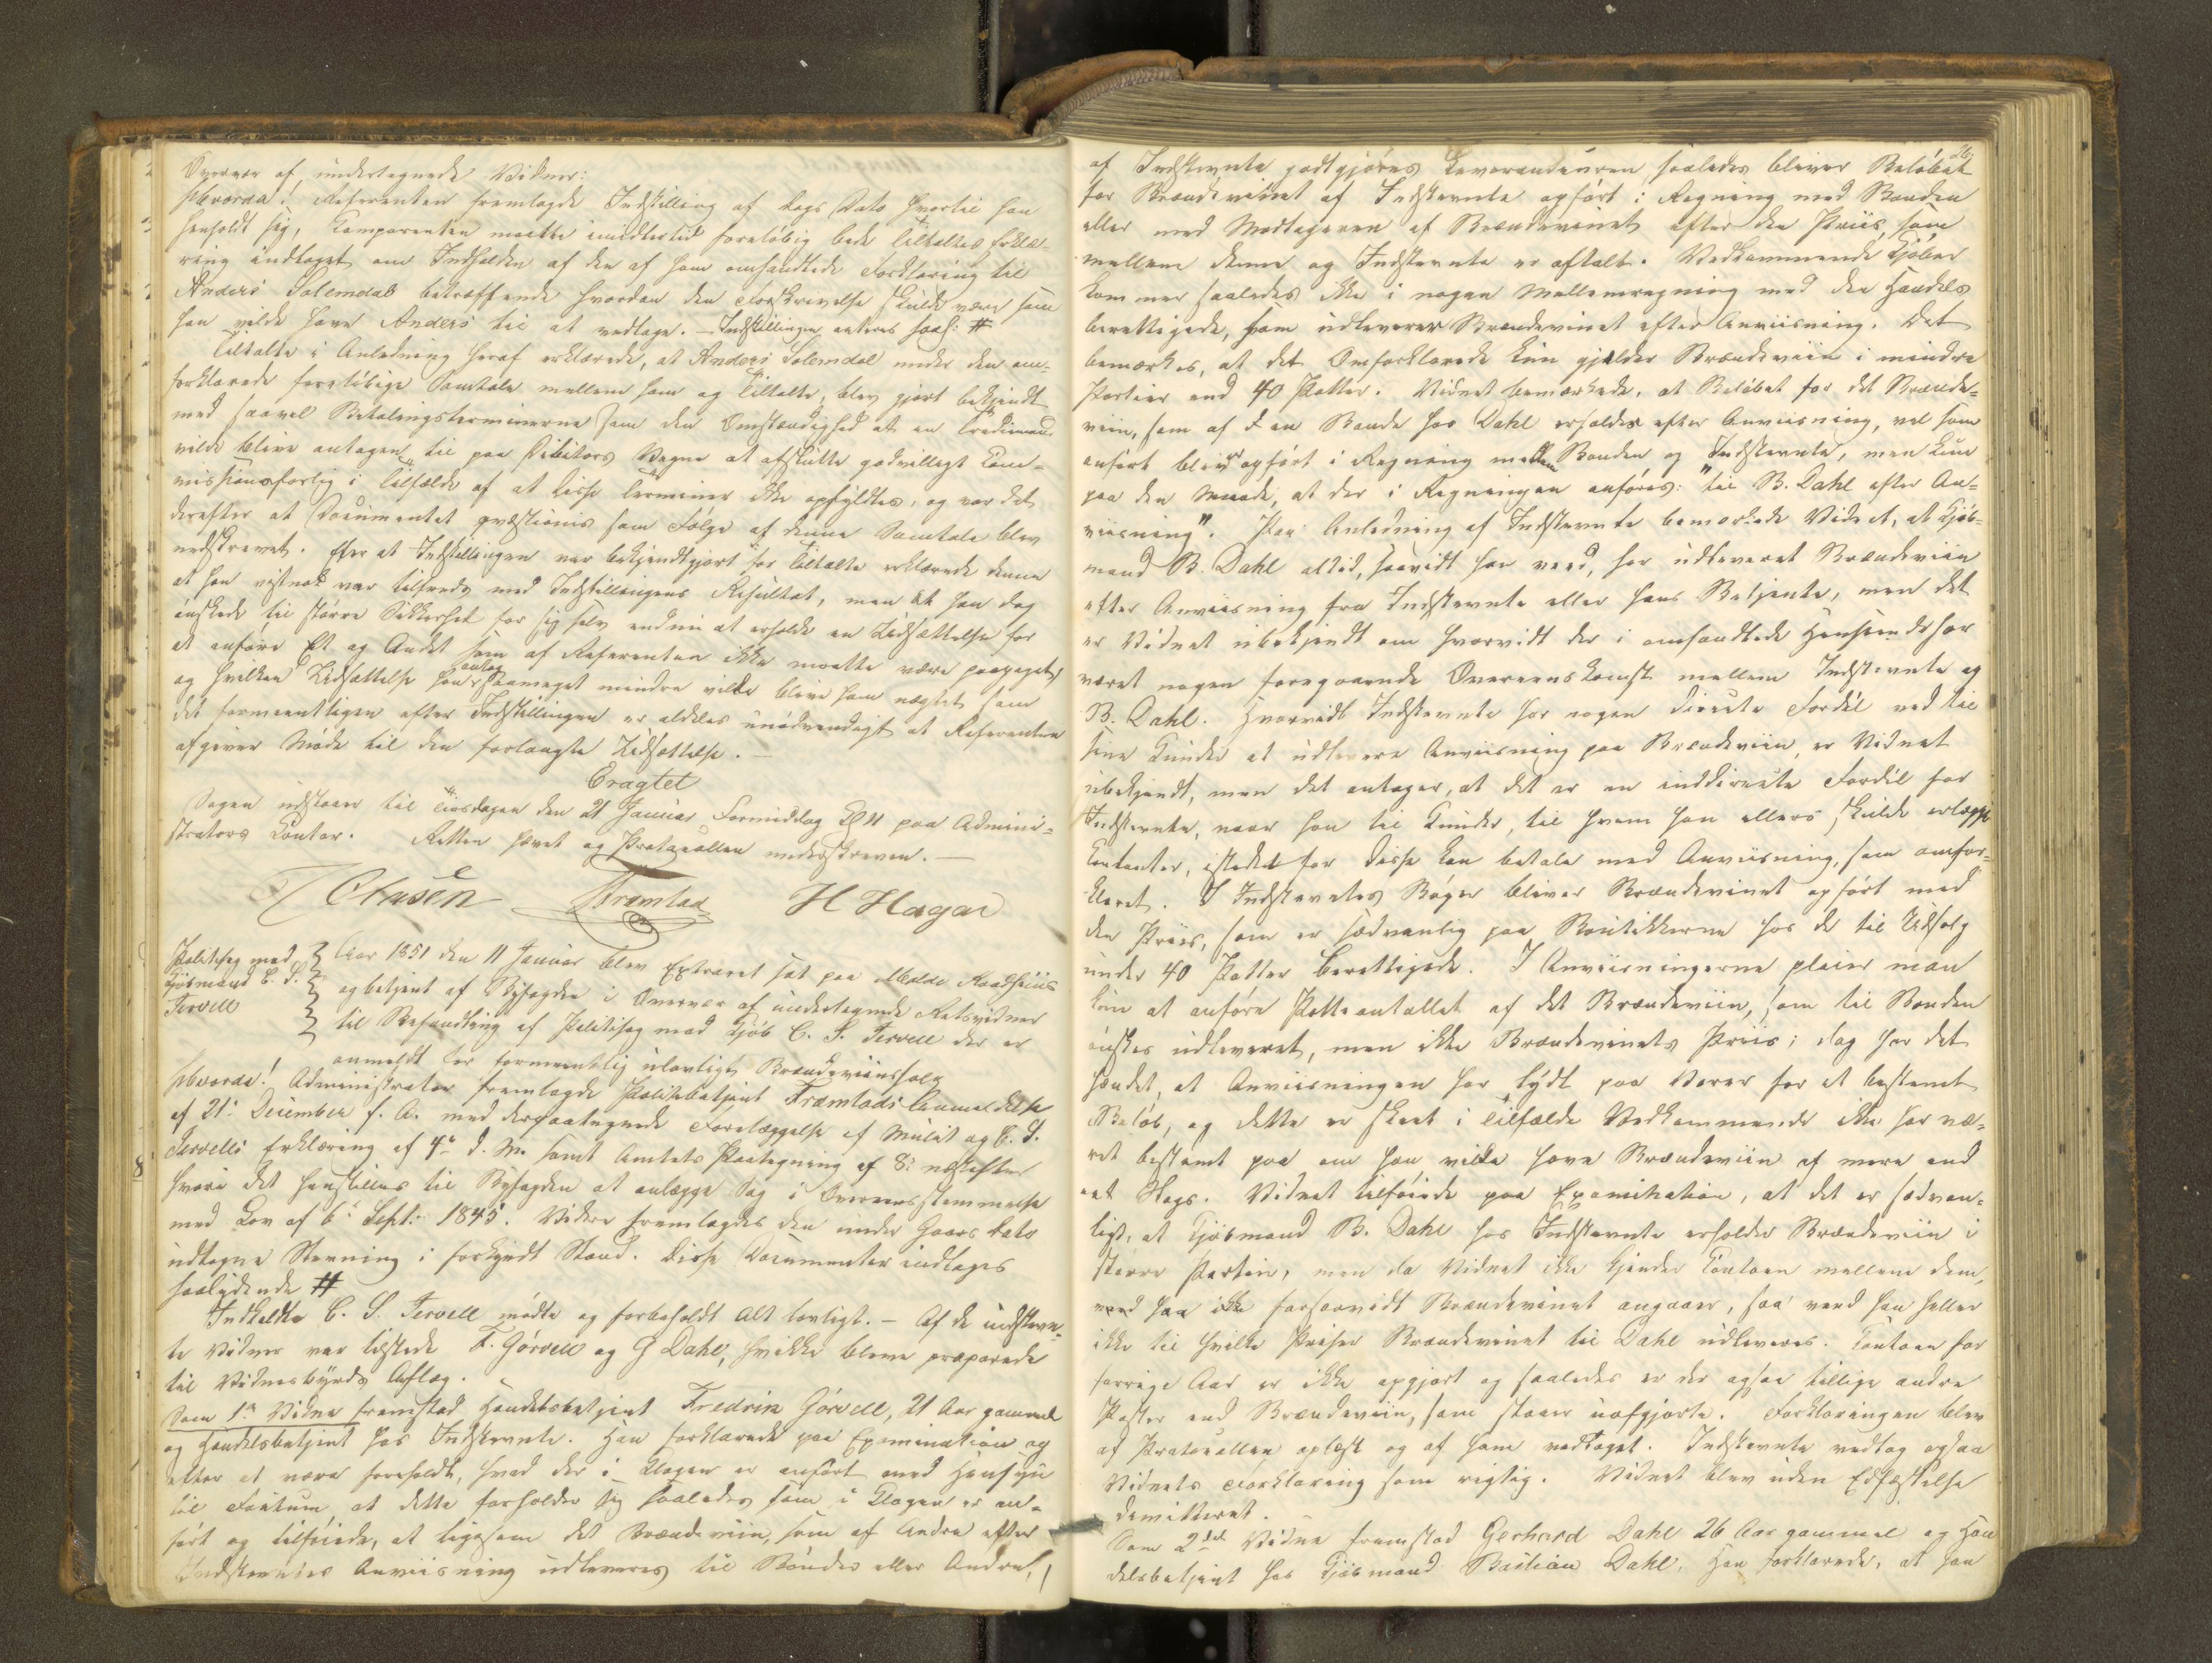 Overvær af undertegnede Vidner:
Hvorda! Referenten fremlagde Indstilling af Dags Dato hvortil han
henholdt sig, Comparenten maatte imidlertid foreløbig bede Tiltaltes Erklæ-
ring indtaget om Indholden af den af ham omhandlede Forklaring til
Anders Solemdal betræffende hvordan den Forskrivelse skulde være som
han vilde have Anders til at vedtage. – Indstillingen anteres saal: #
Tiltalte i Anledning heraf erklærede, at Anders Solemdal under den om-
forklarede foreløbige Samtale mellem ham og Tiltalte, blev gjort bekjendt
med saavel Betalingsterminerne som den Omstændighed at en
vilde blive antagen til paa Debitors Vegne at afslutte godvilligt Com-
missionsforlig i Tilfælde af at disse Terminer ikke opfyldtes, og var det
derefter at Documentet qvæstionis som Følge af denne Samtale blev
nedskrevet. Efter at Indstillingen var bekjendtgjort for Tiltalte erklærede denne
at han vistnok var tilfreds med Indstillingens Resultat, men at han dog
ønskede til større Sikkerhed for sig selv endnu at erholde en Udsættelse for
at anføre Et og Andet som af Referenten ikke maatte være paapeget,
og hvilken Udsættelse han antog saameget mindre vilde blive ham nægtet som
det formeentligen efter Indstillingen er aldeles unødvendigt at Referenten
afgiver Møde til den forlangte Udsættelse. –
Eragtet
Sagen udstaaer til Tirsdagen den 21 Januar Formiddag Kl 11 paa Admini-
strators Contor. Retten hævet og Protocollen underskreven. –
Olasen Træmtad H Hagar
Politisag mod
Kjøbmand C. S.
Fervell
Aar 1851 den 11 Januar blev Extraret sat paa Molde Raadhuus
og betjent af Byfogden i Overvær af undertegnede Retsvidner
til Behandling af Politisag mod Kjøb C. S. Fervell der er
anmeldt for formeentlig ulovligt Brændeviinssalg
Hvorda! Administrator fremlagde Politibetjent Træmtads Anmeldelse
af 21de December f. A. med derpaategnede Forelæggelse af Mulct og C. S.
Fervells Erklæring af 4de d. M. samt Amtets Paategning af 8de næstefter
hvori det henstilles til Byfogden at anlægge Sag i Overeensstemmelse
med Lov af 6te Septr 1845. Videre fremlagdes den under Gaars Dato
udtagne Stevning i forkyndt Stand. Disse Documenter indtages
saalydende #
Indkaldte C. S. Fervell mødte og forbeholdt alt lovligt. – Af de indstevn-
te Vidner var tilstede F. Gørvell og G Dahl, hvilke bleve præparede
til Vidnesbyrds Aflæg.
Som 1ste Vidne fremstod Handelsbetjent Fredrik Gørvell, 21 Aar gammel
og Handelsbetjent hos Indstevnte. Han forklarede paa Examination og
efter at være foreholdt, hvad der i Klagen er anført med Hensyn
til Factum, at dette forholder sig saaledes som i Klagen er an-
ført og tilføiede, at ligesom det Brændeviin, som af Andre efter
Indstevntes Anviisning udleveres til Bønder eller Andre,
26.
af Indstevnte godtgjøres Leverandeuren saaledes bliver Beløbet
for Brændevinet af Indstevnte opført i Regning med Bonden
eller med Modtageren af Brændevinet efter den Priis, som
mellem denne og Indstevnte er aftalt. Vedkommende Kjøber
kommer saaledes ikke i nogen Mellemregning med den Handels
berettigede, som udleverer Brændevinet efter Anviisning. Det
bemærkes, at det Omforklarede kun gjelder Brændeviin i mindre
Partier end 40 Potter. Vidnet bemærkede, at Beløbet for det Brænde-
viin, som af den Bonde hos Dahl erholdes efter Anviisning, vel som
anført bliver opført i Regning mellem Bonden og Indstevnte, men kun
paa den Maade, at der i Regningen anføres: "til B. Dahl efter An-
viisning". Paa Anledning af Indstevnte bemærkede Vidnet, at Kjøb-
mand B. Dahl altid, saavidt han veed, har udleveret Brændeviin
efter Anviisning fra Indstevnte eller hans Betjente, men det
er Vidnet ubekjendt om hvorvidt der i omhandlede Henseende har
været nogen foregaaende Overeenskomst mellem Indstevnte og
B. Dahl. Hvorvidt Indstevnte har nogen directe Fordeel ved til
sine Kunder at udlevere Anviisning paa Brændeviin, er Vidnet
ubekjendt, men det antager, at det er en inddirecte Fordeel for
Indstevnte, naar han til Kunder, til hvem han ellers skulde erlægge
Contanter, istedet for disse kan betale med Anviisning, som omfor-
klaret. I Indstevntes Bøger bliver Brændevinet opført med
den Priis, som er sædvanlig paa Boutikkerne hos de til Udsalg
under 40 Potter berettigede. I Anviisningerne pleier man
kun at anføre Potteantallet af det Brændeviin, som til Bonden
ønskes udleveret, men ikke Brændevinets Priis; dog har det
hændet, at Anviisningen har lydt paa Varer for et bestemt
Beløb, og dette er skeet i Tilfælde Vedkommende ikke har væ-
ret bestemt paa om han vilde have Brændeviin af mere end
eet Slags. Vidnet tilføiede paa Examination, at det er sædvan-
ligt, at Kjøbmand B. Dahl hos Indstevnte erholder Brændeviin i
større Partier, men da Vidnet ikke kjender Contoen mellem dem,
veed han ikke forsaavidt Brændevinet angaaer, saa veed han heller
ikke til hvilke Priser Brændevinet til Dahl udleveres. Contoen for
forrige Aar er ikke opgjort og saaledes er der ogsaa tillige andre
Poster end Brændeviin, som staaer uafgjorte. Forklaringen blev
af Protocollen oplæst og af ham vedtaget. Indstevnte vedtog ogsaa
Vidnets Forklaring som rigtig. Vidnet blev uden Edfæstelse
demitteret.
Som 2det Vidne fremstod Gerhard Dahl 26 Aar gammel og Han
delsbetjent hos Kjøbmand Bastian Dahl. Han forklarede, at han